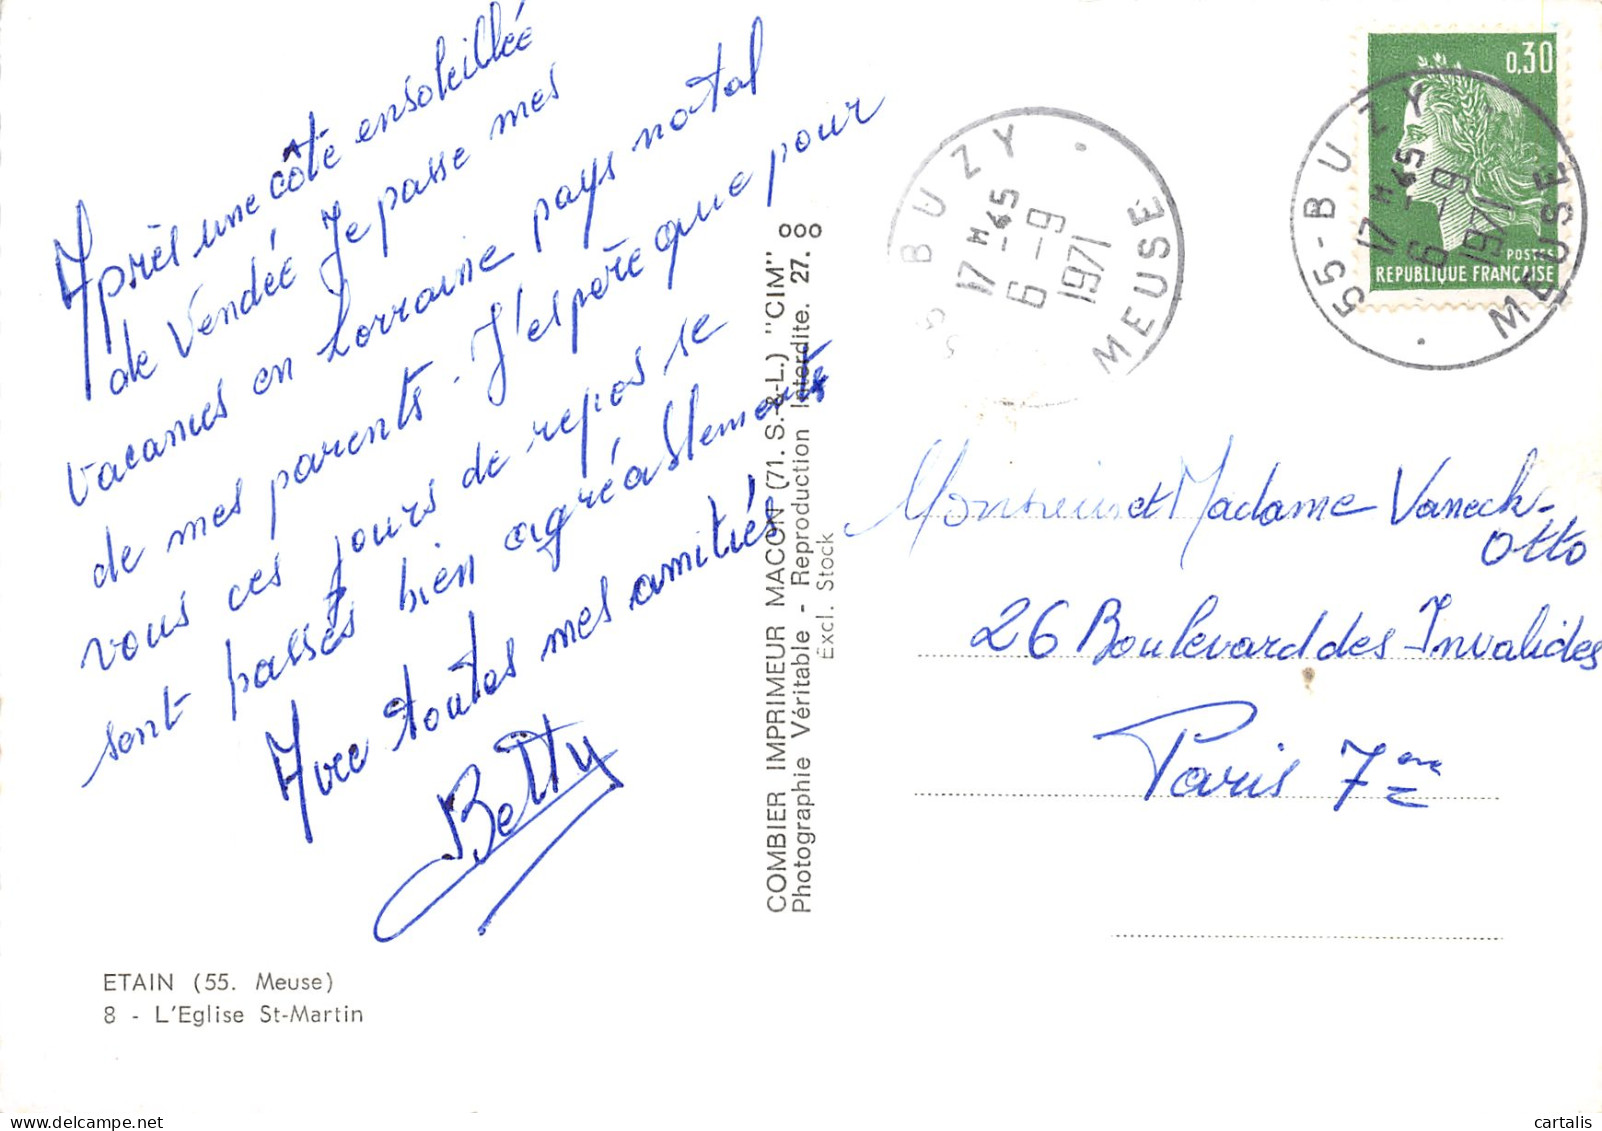 Après une côte ensoleillée
de Vendée Je passe mes
vacances en Lorraine pays natal
de mes parents. J'espère que pour
vous ces jours de repos se
sont passés bien agréablement
Avec toutes mes amitiés
Betty
ETAIN (55. Meuse)
8 - L'Eglise St-Martin
COMBIER IMPRIMEUR MACON (71. S.-&-L.) "CIM"
Photographie Véritable - Reproduction Interdite. 27.
Excl. Stock
55 BUZY
17 H 45
6 - 9
1971
MEUSE
0,30
POSTES
REPUBLIQUE FRANÇAISE
55 - BUZY
17 H 45
6 - 9
1971
MEUSE
Monsieur et Madame Vaneck-
Otto
26 Boulevard des Invalides
Paris 7ème